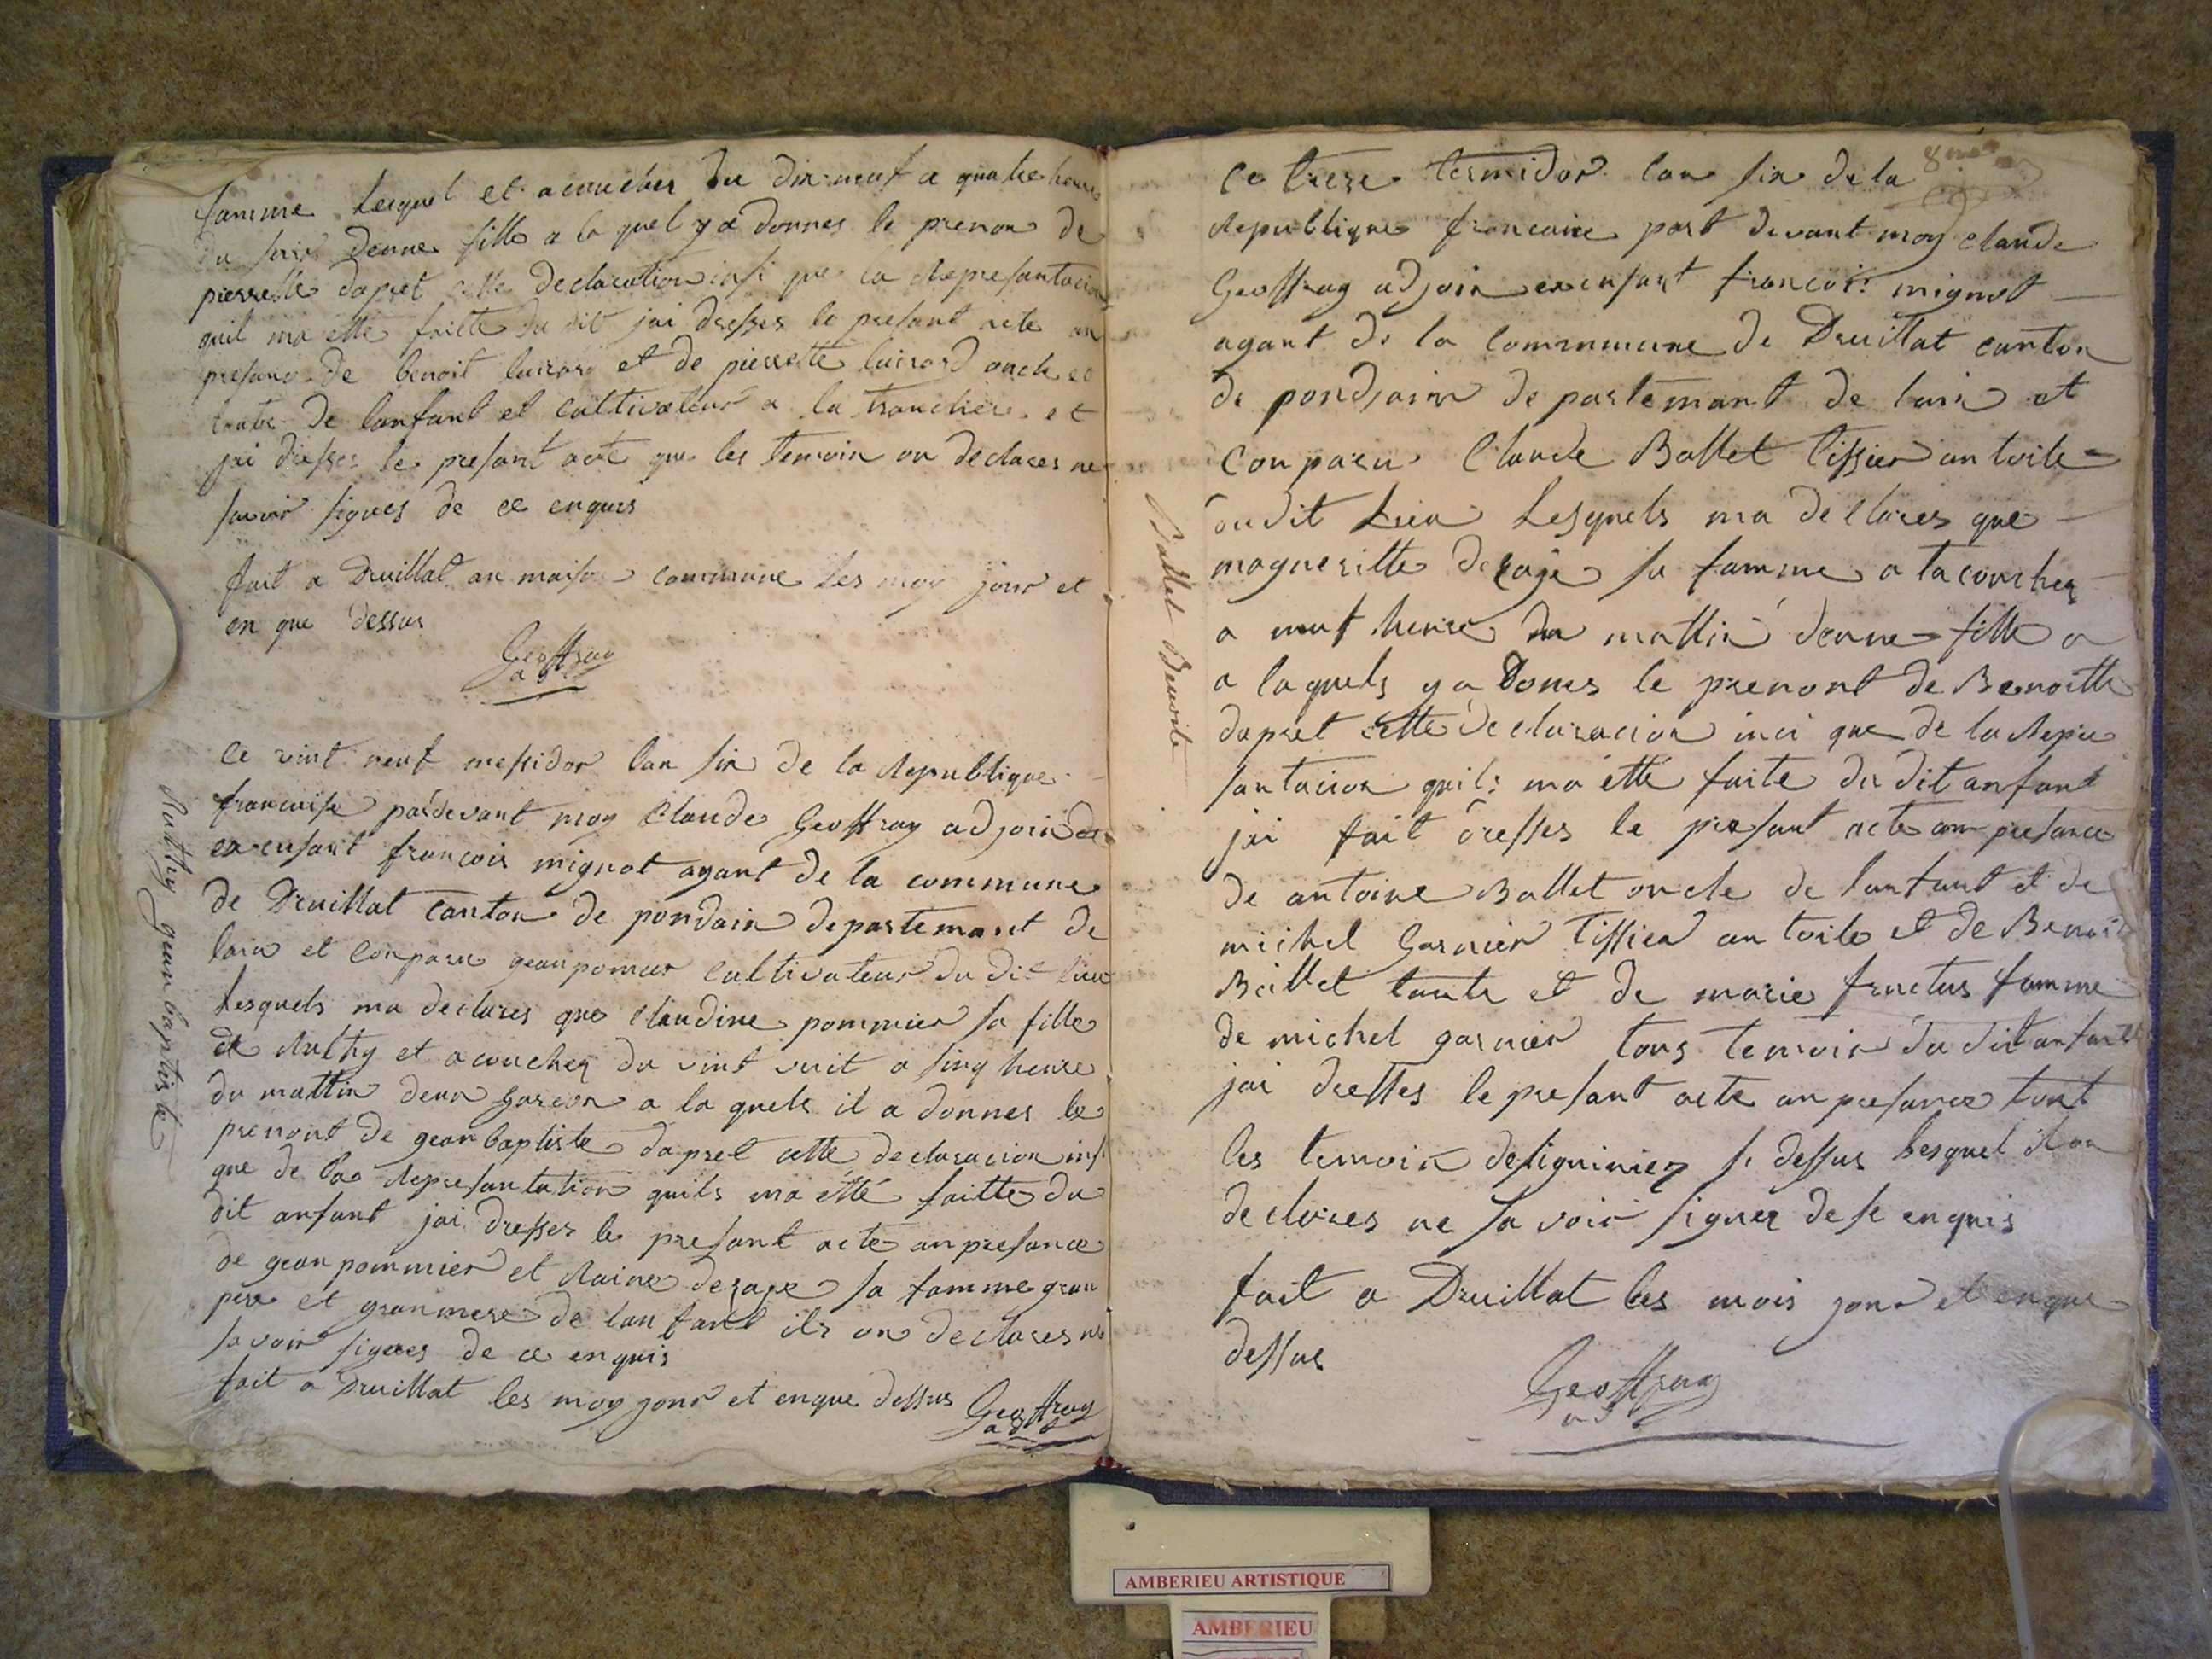 famme Lequel et acoucher du dix neuf a quatre heure
du soir deune fille a la quel y a donnes le prenon de
pierrette dapret cette declaration insi que la Represantacion
quil ma etté faitte du dit jai dresser le presant acte an
presanc de benoit luisard et de pierrette luisard oncle et
tante de lanfant et cultivateur a la tranchiere et
jai dresser le presant acte que les temoin on declares ne
savoir signes de ce enquis
fait a Druillat an maison commune les moy jour et
en que dessus
Geoffray
adt
Ruthy gean baptiste
Ce vint neuf messidor lan six de la Republique
francaise pardevant moy Claude Geoffray adjoin
exensant francois mignot agant de la commune
de Druillat canton de pondain departemant de
lain et conparu gean pomier cultivateur du dit lieu
Lesquels ma declares que claudine pommier sa fille
et Ruthy et acoucher du vint vuit a sinq heure
du mattin deun garcon a la quels il a donnes le
prenont de gean baptiste dapret cette declaracion insi
que de la Represantation quils ma etté faitte du
dit anfant jai dresser le presant acte anpresance
de gean pommier et Raine derage sa famme gran
pere et granmere de lanfant ils on declares ne
savoir signes de ce enquis
fait a Druillat les moy jour et enque dessus Geoffray
adt
8me
Ballet Benoite
Ce trese termidor lan six de la
Republique francaise part devant moy claude
Geoffray adjoin exensant francois mignot
agant de la commmune de Druillat canton
de pondain departemant de lain et
conparu Claude Ballet tissier an toile
oudit Lieu Lesquels ma declares que
magueritte derage sa famme a tacoucher
a neuf heure du mattin deune fille a
a laquels y a dones le prenont de Benoitte
dapret cette declaracion inci que de la Repre
santacion quils ma étté faite du dit anfant
jai fait dresses le presant acte an presance
de antoine Ballet oncle de lanfant et de
michel garnier tissier an toile et de Benoit
Ballet tante et de marie fructus famme
de michel garnier tous temoin du dit anfant
jai dresses le presant acte anpresance tout
les temoin desiginiez si dessus Lesquel il on
declares ne savoir signer dese enquis
fait a Druillat les mois jour et enque
dessus
Geoffray
adt
AMBERIEU ARTISTIQUE
AMBERIEU